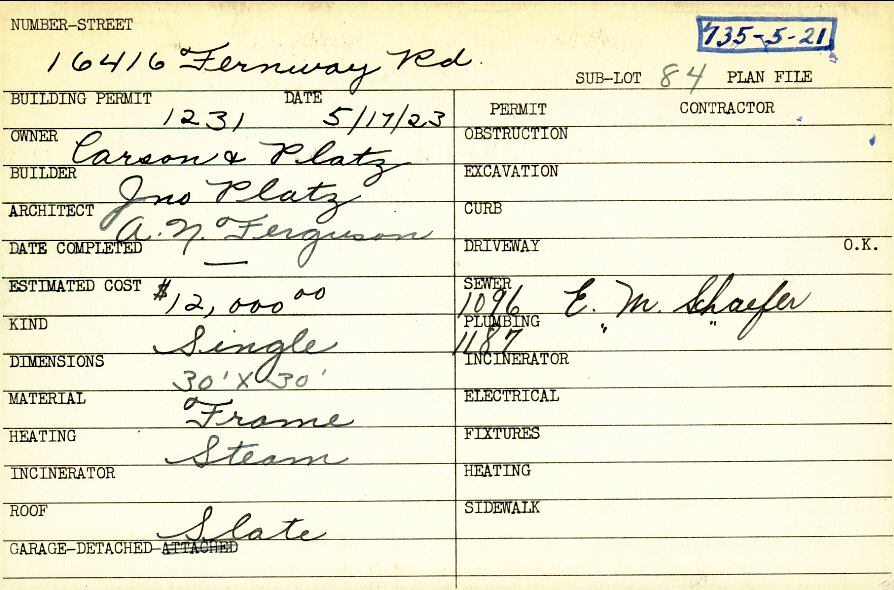 NUMBER-STREET
735-5-21
16416 Fernway Rd.
SUB-LOT 84 PLAN FILE
BUILDING PERMIT 1231 DATE 5/17/23
OWNER Carson & Platz
BUILDER Jno Platz
ARCHITECT A. N. Ferguson
DATE COMPLETED —
ESTIMATED COST $12,000 00
KIND Single
DIMENSIONS 30' X 30'
MATERIAL Frame
HEATING Steam
INCINERATOR
ROOF Slate
GARAGE-DETACHED-ATTACHED
PERMIT CONTRACTOR
OBSTRUCTION
EXCAVATION
CURB
DRIVEWAY O.K.
SEWER 1096 E. M. Schaefer
PLUMBING 1187 " "
INCINERATOR
ELECTRICAL
FIXTURES
HEATING
SIDEWALK